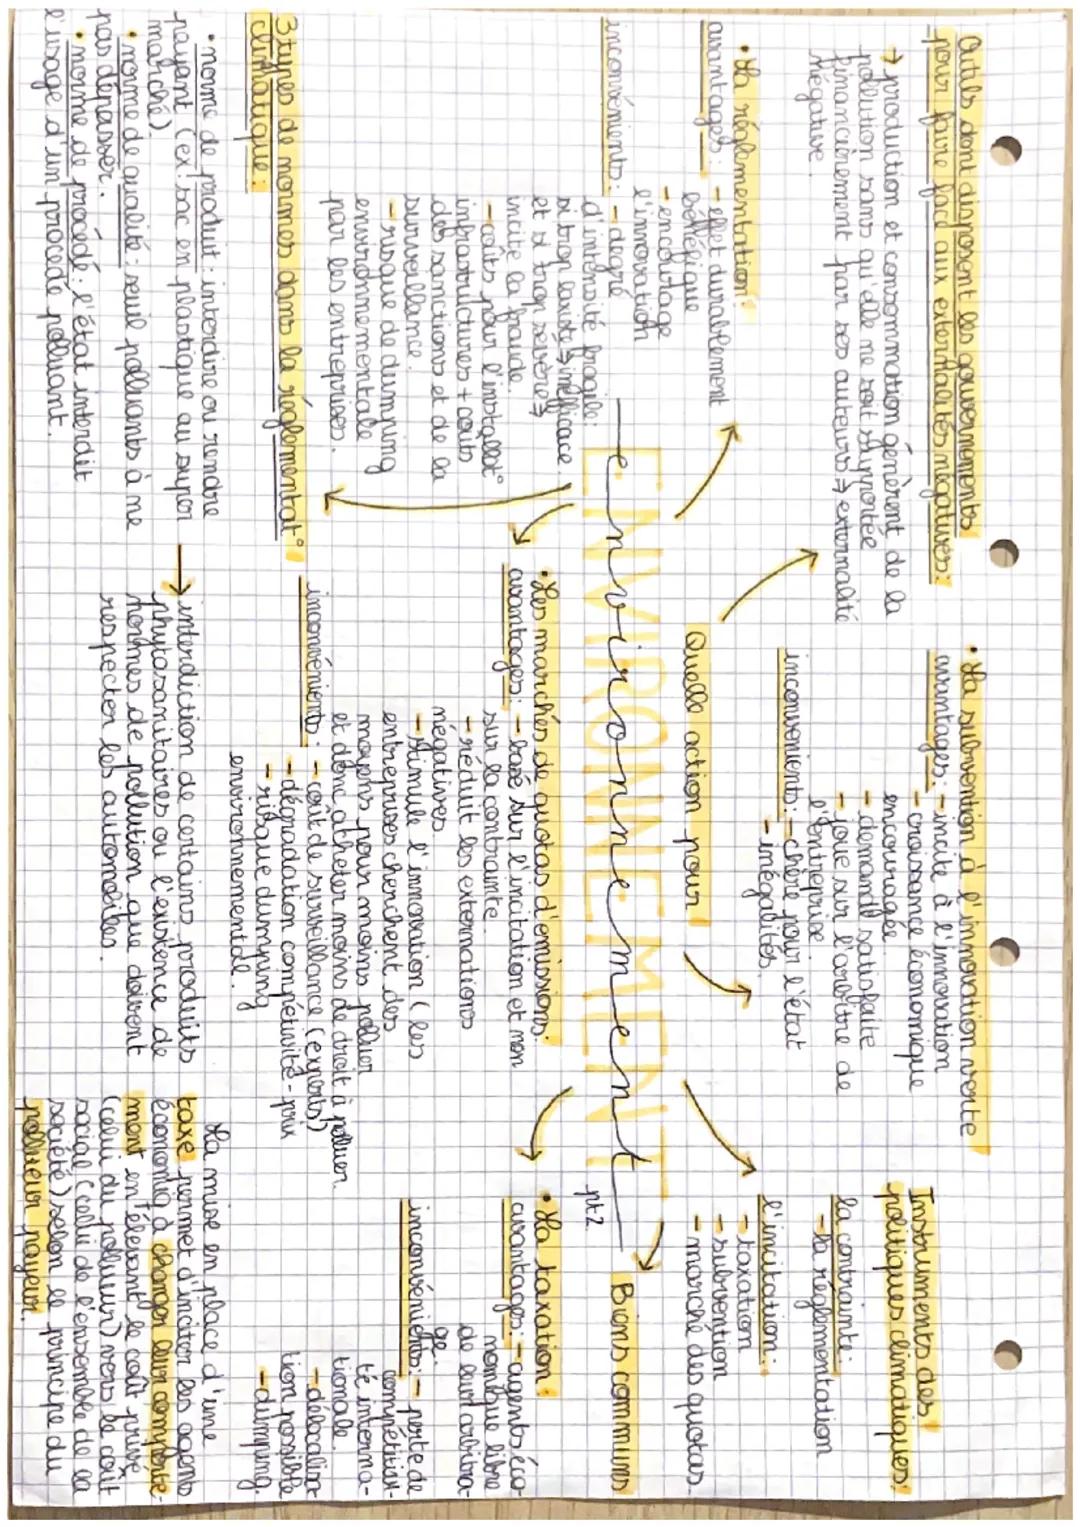 Outils dont disposent les gouvernements
pour faire face aux externalités négatives:
→ production et consommation génèrent de la
pollution sans qu'elle ne soit supportée
financièrement par ses auteurs ⇒ externalité
négative.
• La réglementation:
avantages: - effet durablement
bénéfique
- encourage
l'innovation
inconvénients: - degré
d'intensité fragile:
si trop laxiste ⇒ inefficace
et si trop sévère ⇒
incite la fraude.
- coûts pour l'installat°
infrastructures + coûts
des sanctions et de la
surveillance.
- risque de dumping
environnementale
par les entreprises.
3 types de normes dans la réglementat°
climatique:
• norme de produit: interdire ou rendre
payant (ex: sac en plastique au super
marché).
• norme de qualité: seuil polluants à ne
pas dépasser.
• norme de procédé: l'état interdit
l'usage d'un procédé polluant.
→ interdiction de certains produits
phytosanitaires ou l'existence de
normes de pollution que doivent
respecter les automobiles.
• La subvention à l'innovation verte
avantages: - incite à l'innovation
- croissance économique
encouragée
- demande satisfaite
- joue sur l'arbitre de
l'entreprise.
inconvenients: - chère pour l'état
- inégalités
Quelle action pour
ENVIRONNEMENT
environnement
pt 2.
• Les marchés de quotas d'émissions:
avantages: - basé sur l'incitation et non
sur la contrainte.
- réduit les externations
négatives
- stimule l'innovation (les
entreprises cherchent des
moyens pour moins polluer
et donc acheter moins de droit à polluer.
inconvénients: - coût de surveillance (experts)
- dégradation compétitivité-prix
- risque dumping
environnementale.
Instruments des
politiques climatiques:
la contrainte:
- la réglementation
l'incitation:
- taxation
- subvention
- marché des quotas.
Biens communs
• La taxation:
avantages: - agents éco-
nomique libre
de leur arbitra-
ge.
inconvénients: - perte de
compétitivi-
té interna-
tionale.
- délocalisa-
tion possible
- dumping.
La mise en place d'une
taxe permet d'inciter les agents
économiq à changer leur comporte-
ment en élevant le coût privé
(celui du pollueur) vers le coût
social (celui de l'ensemble de la
société) selon le principe du
pollueur payeur.